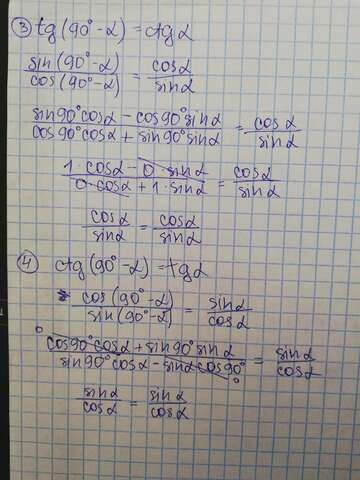 ③ tg(90°-α) = ctgα
sin(90°-α)/cos(90°-α) = cosα/sinα
sin90°cosα - cos90°sinα/cos90°cosα + sin90°sinα = cosα/sinα
1·cosα - 0·sinα/0·cosα + 1·sinα = cosα/sinα
cosα/sinα = cosα/sinα
④ ctg(90°-α) = tgα
cos(90°-α)/sin(90°-α) = sinα/cosα
0
cos90°cosα + sin90°sinα/sin90°cosα - sinα cos90° = sinα/cosα
0
sinα/cosα = sinα/cosα